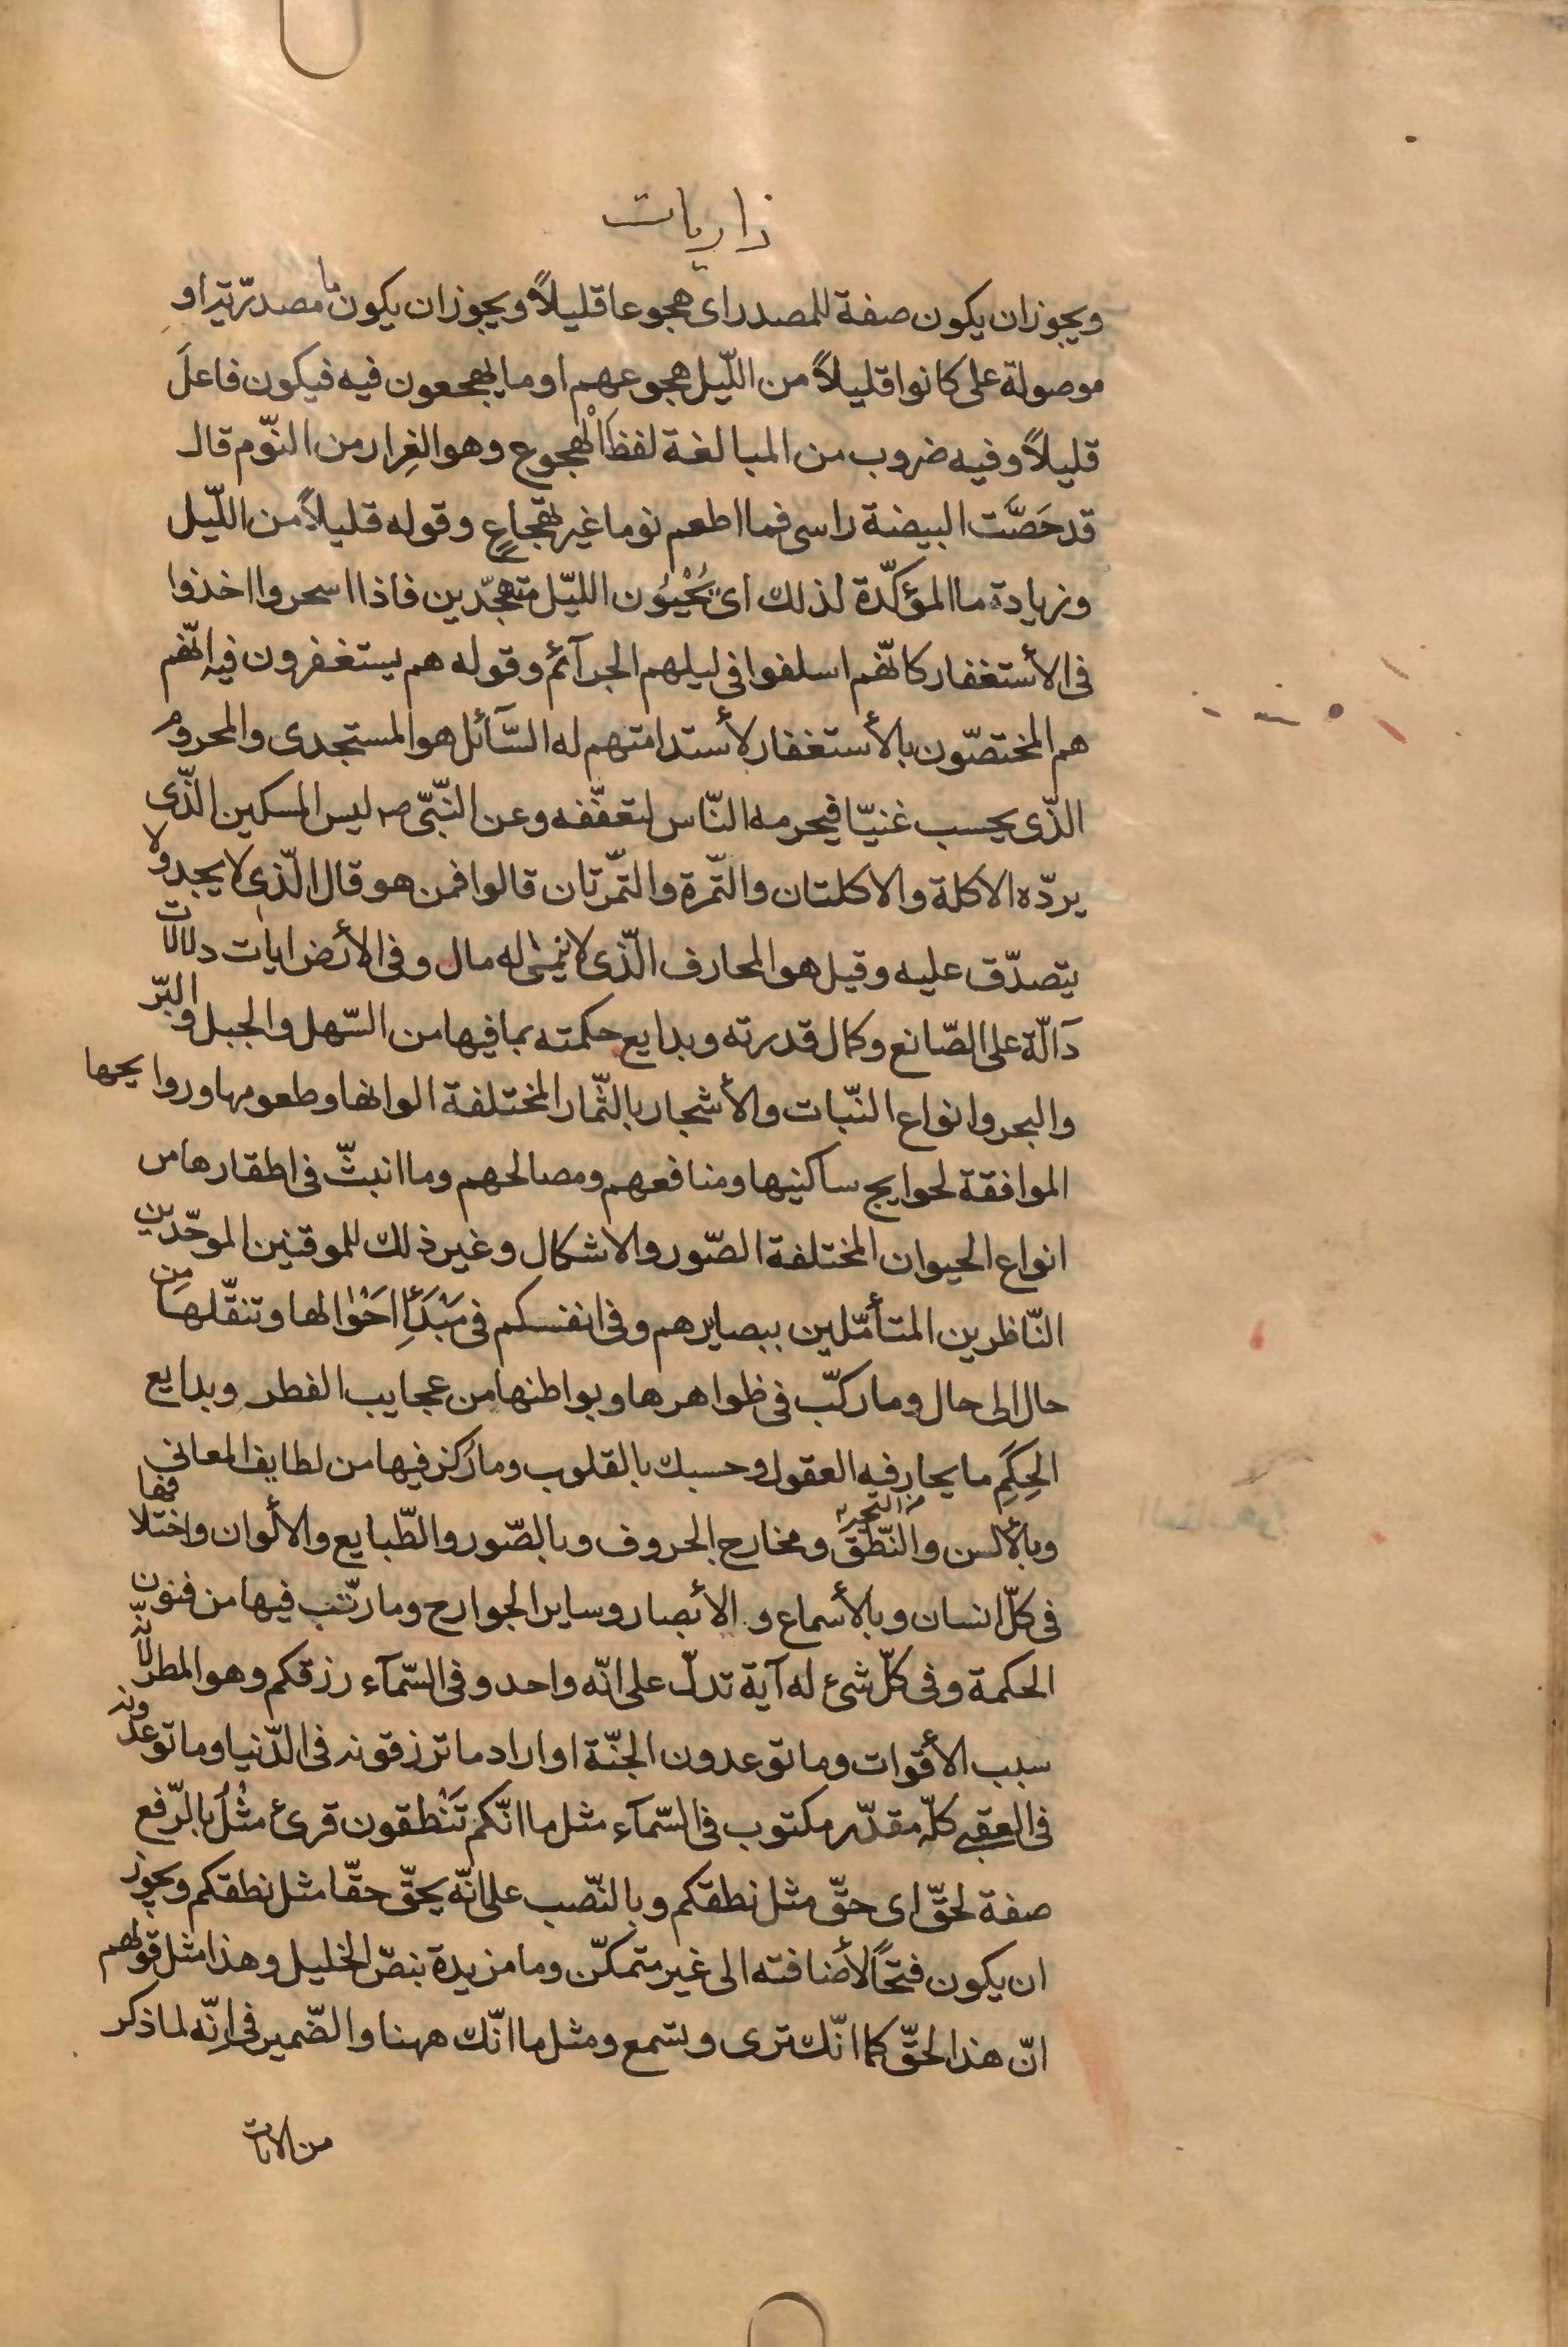 ذاريات
ويجوز ان يكون صفة للمصدر اى هجوعا قليلاً ويجوز ان يكون ما مصدرّية او
موصولة على كانوا قليلاً من اللّيل هجوعهم او ما يهجعون فيه فيكون فاعلَ
قليلاً وفيه ضروب من المبالغة لفظَ الْهجوع وهو الغِرار من النّوم قال
قد حَصَّت البيضة راسى فما اطعم نوما غير تهجاعٍ وقوله قليلاً من اللّيل
وزيادة ما المؤكّدة لذلك اى يُحْيُون الليّل متهجّدين فاذا اسحروا اخذوا
فى الأستغفار كانّهم اسلفوا فى ليلهم الجرآئم وقوله هم يستغفرون فيه انّهم
هم المختصّون بالأستغفار لأستدامتهم له السّآئل هو المستجدى والمحروم
الذّى يحسب غنيّا فيحرمه النّاس لتعفّفه وعن النّبّى صم ليس المسكين الذّى
يردّه الاكلة والاكلتان والتّمرة والتّمرتان قالوا فمن هو قال الّذى لا يجد ولا
يتصدّق عليه وقيل هو المحارف الّذى لا ينمى له مال وفى الأرض ايات دلالات
دآلّة على الصّانع وكمال قدرته وبدايع حكمته بما فيها من السّهل والجبل والبّر
والبحر وانواع النّبات والأشجار بالثّمار المختلفة الوانها وطعومها وروايحها
الموافقة لحوايج ساكنيها ومنافعهم ومصالحهم وما انبثّ فى اطقارها من
انواع الحيوان المختلفة الصّور والاشكال وغير ذلك للموقنين الموحّدين
النّاظرين المتأمّلين ببصايرهم وفى انفسكم فى مَبْدَأِ احَوْالها وتنقّلها من
حال الى حال وما ركّب فى ظواهرها وبواطنها من عجايب الفطر وبدايع
الحِكَمِ ما يحار فيه العقول وحسبك بالقلوب وما رُكز فيها من لطايف المعانى
وبالألسن والنّطق ومخارج الحروف وبالصّور والطّبايع والألوان واختلافها
فى كلّ انسان وبالأسماع والأبصار وساير الجوارح وما رتّب فيها من فنون
الحكمة وفى كلّ شئ له آية تدلّ على انّه واحد وفى السّمآء رزقكم وهو المطر لانّه
سبب الأقوات وما توعدون الجنّة او اراد ما ترزقونه فى الدّنيا وما توعدونه
فى العقبى كلّه مقدّر مكتوب فى السّمآء مثل ما انّكم تَنْطقون قرئ مثْلُ بالرّفع
صفة لحقّ اى حقّ مثل نطقكم وبالنّصب على انّه يحقّ حقّا مثل نطقكم ويجوز
ان يكون فتحاً لأضافته الى غير متمكّن وما مزيدة بنصّ الخليل وهذا مثل قولهم
انّ هذا لحقّ كما انّك ترى وتسمع ومثل ما انّك ههنا والضّمير فى انّه لما ذكر
من الايات